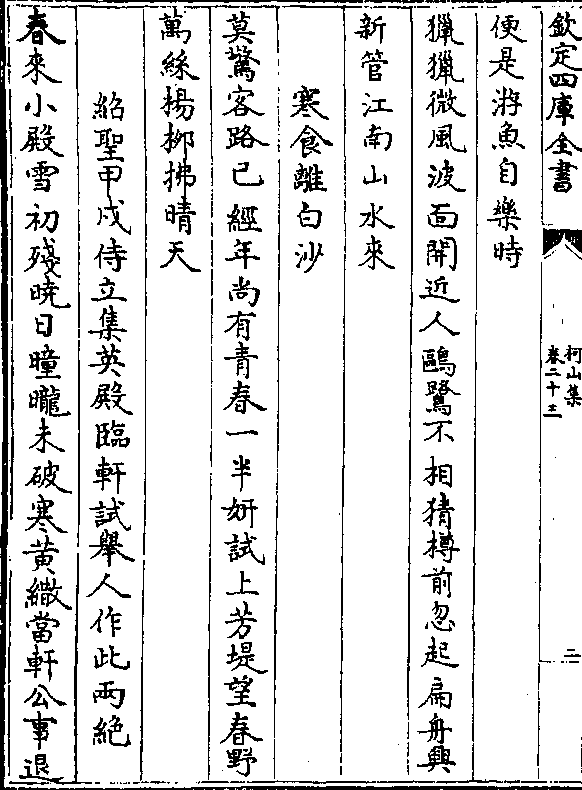 欽定四庫全書
柯山集
卷二十三
二
便是游魚自樂時
獵獵微風波面開近人鷗鷺不相猜樽前忽起扁舟興
新管江南山水來
寒食離白沙
莫驚客路已經年尚有青春一半妍試上芳堤望春野
萬絲揚柳拂晴天
紹聖甲戌侍立集英殿臨軒試舉人作此兩絶
春來小殿雪初殘曉日曈曨未破寒黃繖當軒公事退